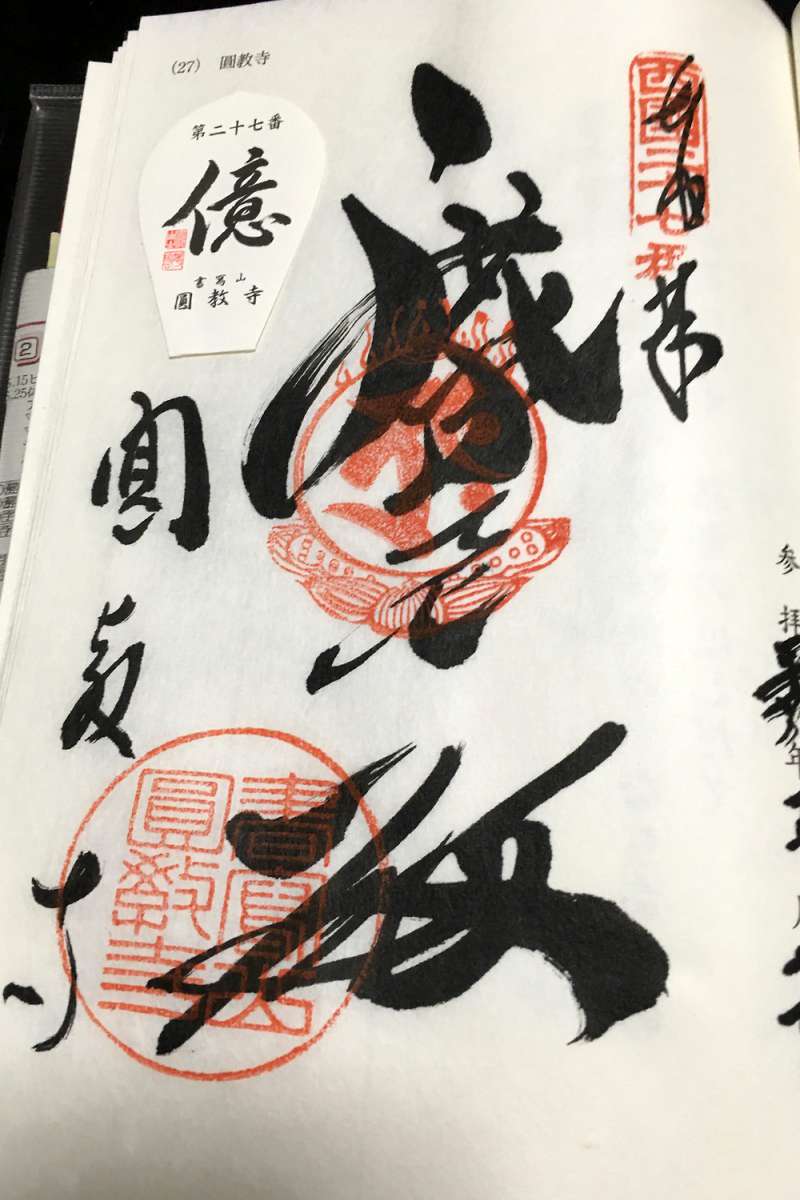 (27) 圓教寺
第二十七番
億
書寫山
圓教寺
奉拝
摩尼殿
圓教寺
書寫山
圓教寺
参拝
年
月
2